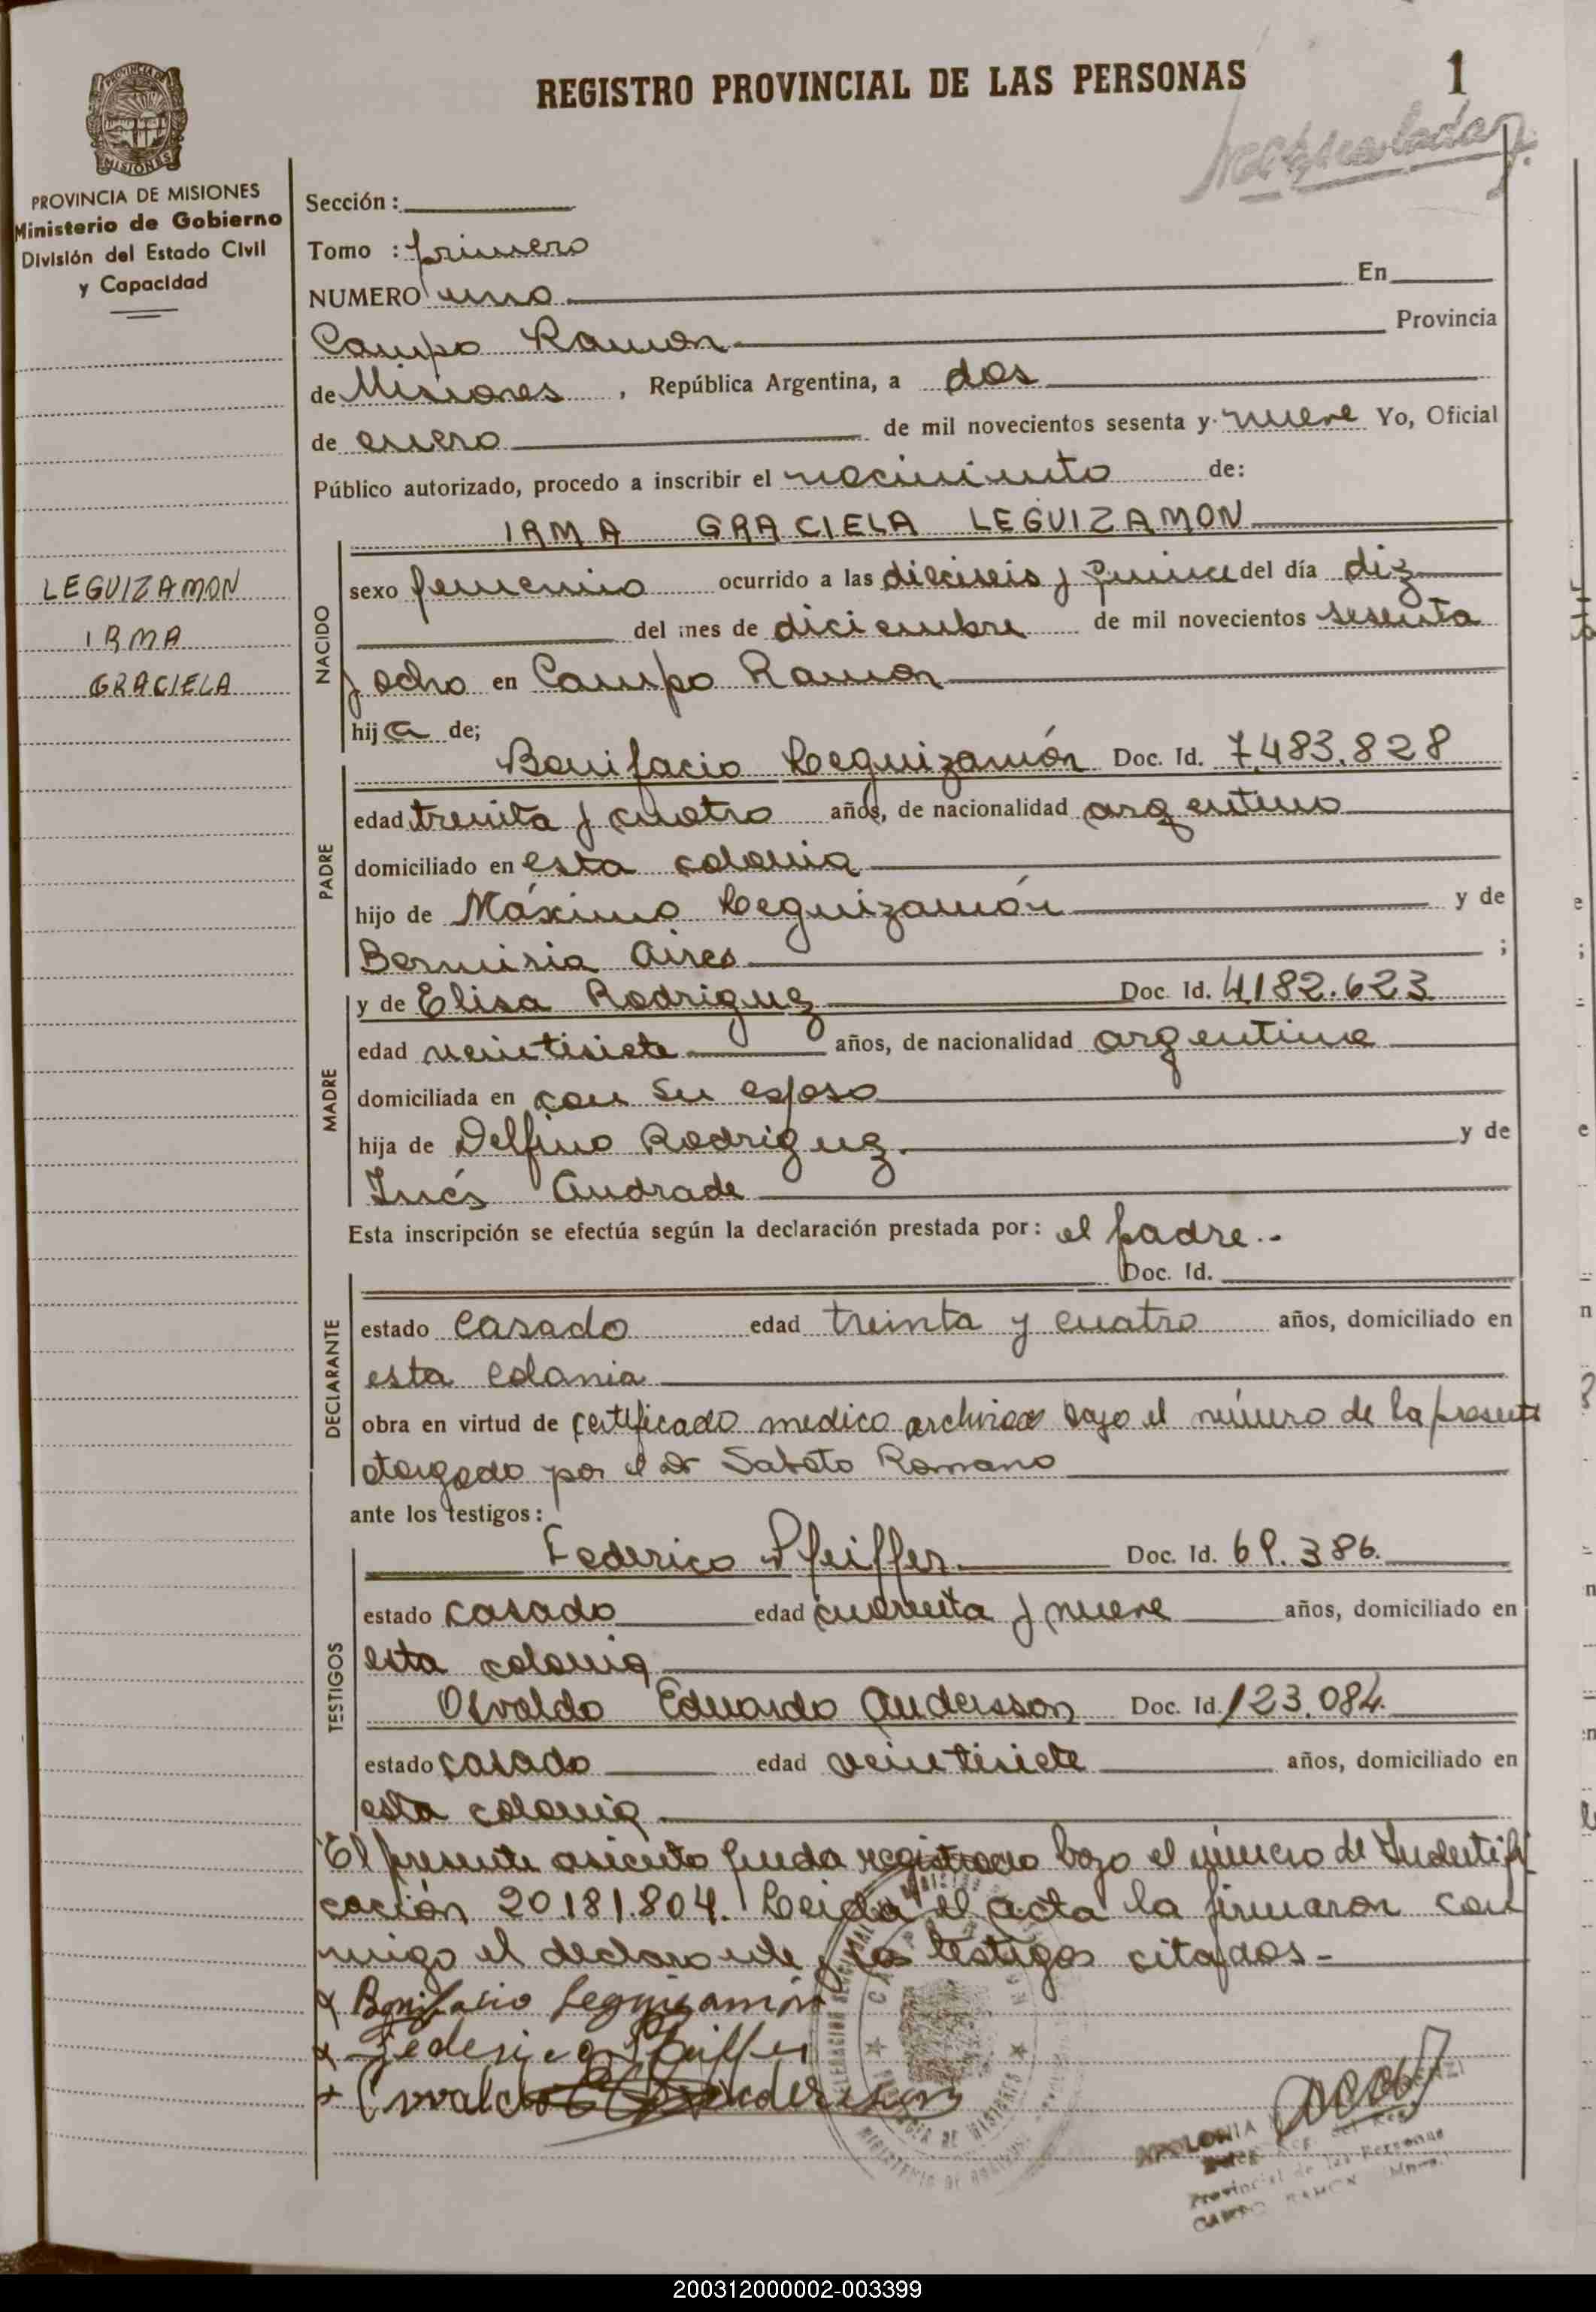 REGISTRO PROVINCIAL DE LAS PERSONAS
1
PROVINCIA DE
MISIONES
PROVINCIA DE MISIONES
Ministerio de Gobierno
División del Estado Civil
y Capacidad
Sección :
Tomo : primero
NUMERO uno En
Campo Ramon Provincia
de Misiones , República Argentina, a dos
de enero de mil novecientos sesenta y nueve Yo, Oficial
Público autorizado, procedo a inscribir el nacimiento de:
IRMA GRACIELA LEGUIZAMON
LEGUIZAMON
IRMA
GRACIELA
NACIDO
sexo femenino ocurrido a las dieciseis y quince del día diez
del mes de diciembre de mil novecientos sesenta
y ocho en Campo Ramon
hija de;
PADRE
Bonifacio Leguizamón Doc. Id. 7.483.828
edad treinta y cuatro años, de nacionalidad argentino
domiciliado en esta colonia
hijo de Máximo Leguizamón y de
Aires ;
MADRE
y de Elisa Rodriguez Doc. Id. 4182.623
edad veintisiete años, de nacionalidad argentina
domiciliada en con su esposo
hija de Delfino Rodriguez y de
Inés Andrade
Esta inscripción se efectúa según la declaración prestada por: el padre.-
Doc. Id.
DECLARANTE
estado casado edad treinta y cuatro años, domiciliado en
esta colonia
obra en virtud de certificado medico archivado bajo el número de la presente
otorgado por el Dr Sabato Romano
ante los testigos:
TESTIGOS
Federico Pfeiffer Doc. Id. 69.386.
estado casado edad cuarenta y nueve años, domiciliado en
esta colonia
Osvaldo Eduardo Andersson Doc. Id. 123.084.
estado casado edad veintisiete años, domiciliado en
esta colonia
El presente asiento queda registrado bajo el número de Indentifi
cación 20.181.804. Leida el acta la firmaron con
migo el declarante y los testigos citados.-
x Bonifacio Leguizamón
x Federico Pfeiffer
x Osvaldo E Andersson
APOLONIA
Provincial de las Personas
CAMPO RAMON Mnes.
200312000002-003399